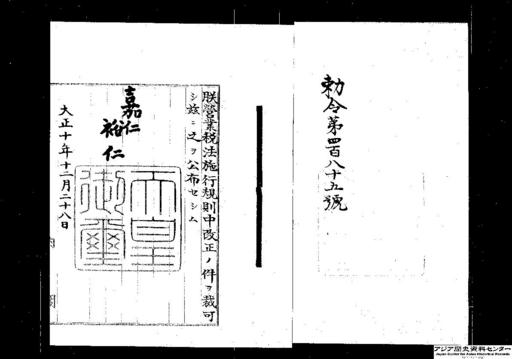 勅令第四百八十五號
朕營業税法施行規則中改正ノ件ヲ裁可
シ茲ニ之ヲ公布セシム
嘉仁
裕仁
天皇御璽
大正十年十二月二十八日
内閣
アジア歴史資料センター
Japan Center for Asian Historical Records